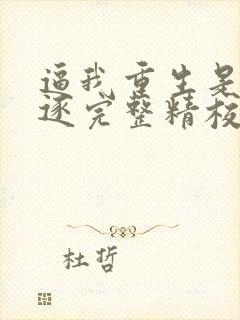 逼我重生是
逐完整精校
杜哲